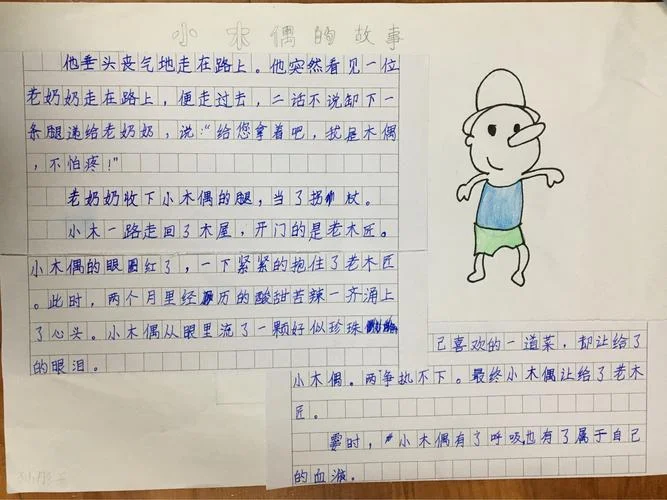 小木偶的故事
他垂头丧气地走在路上。他突然看见一位
老奶奶走在路上，便走过去，二话不说卸下一
条腿递给老奶奶，说：“给您拿着吧，我是木偶
，不怕疼！”
老奶奶收下小木偶的腿，当了拐杖。
小木一路走回了木屋，开门的是老木匠。
小木偶的眼圈红了，一下紧紧的抱住了老木匠
。此时，两个月里经历的酸甜苦辣一齐涌上
了心头。小木偶从眼里流了一颗好似珍珠
的眼泪。
己喜欢的一道菜，却让给了
小木偶。两争执不下。最终小木偶让给了老木
匠。
霎时，小木偶有了呼吸也有了属于自己
的血液。